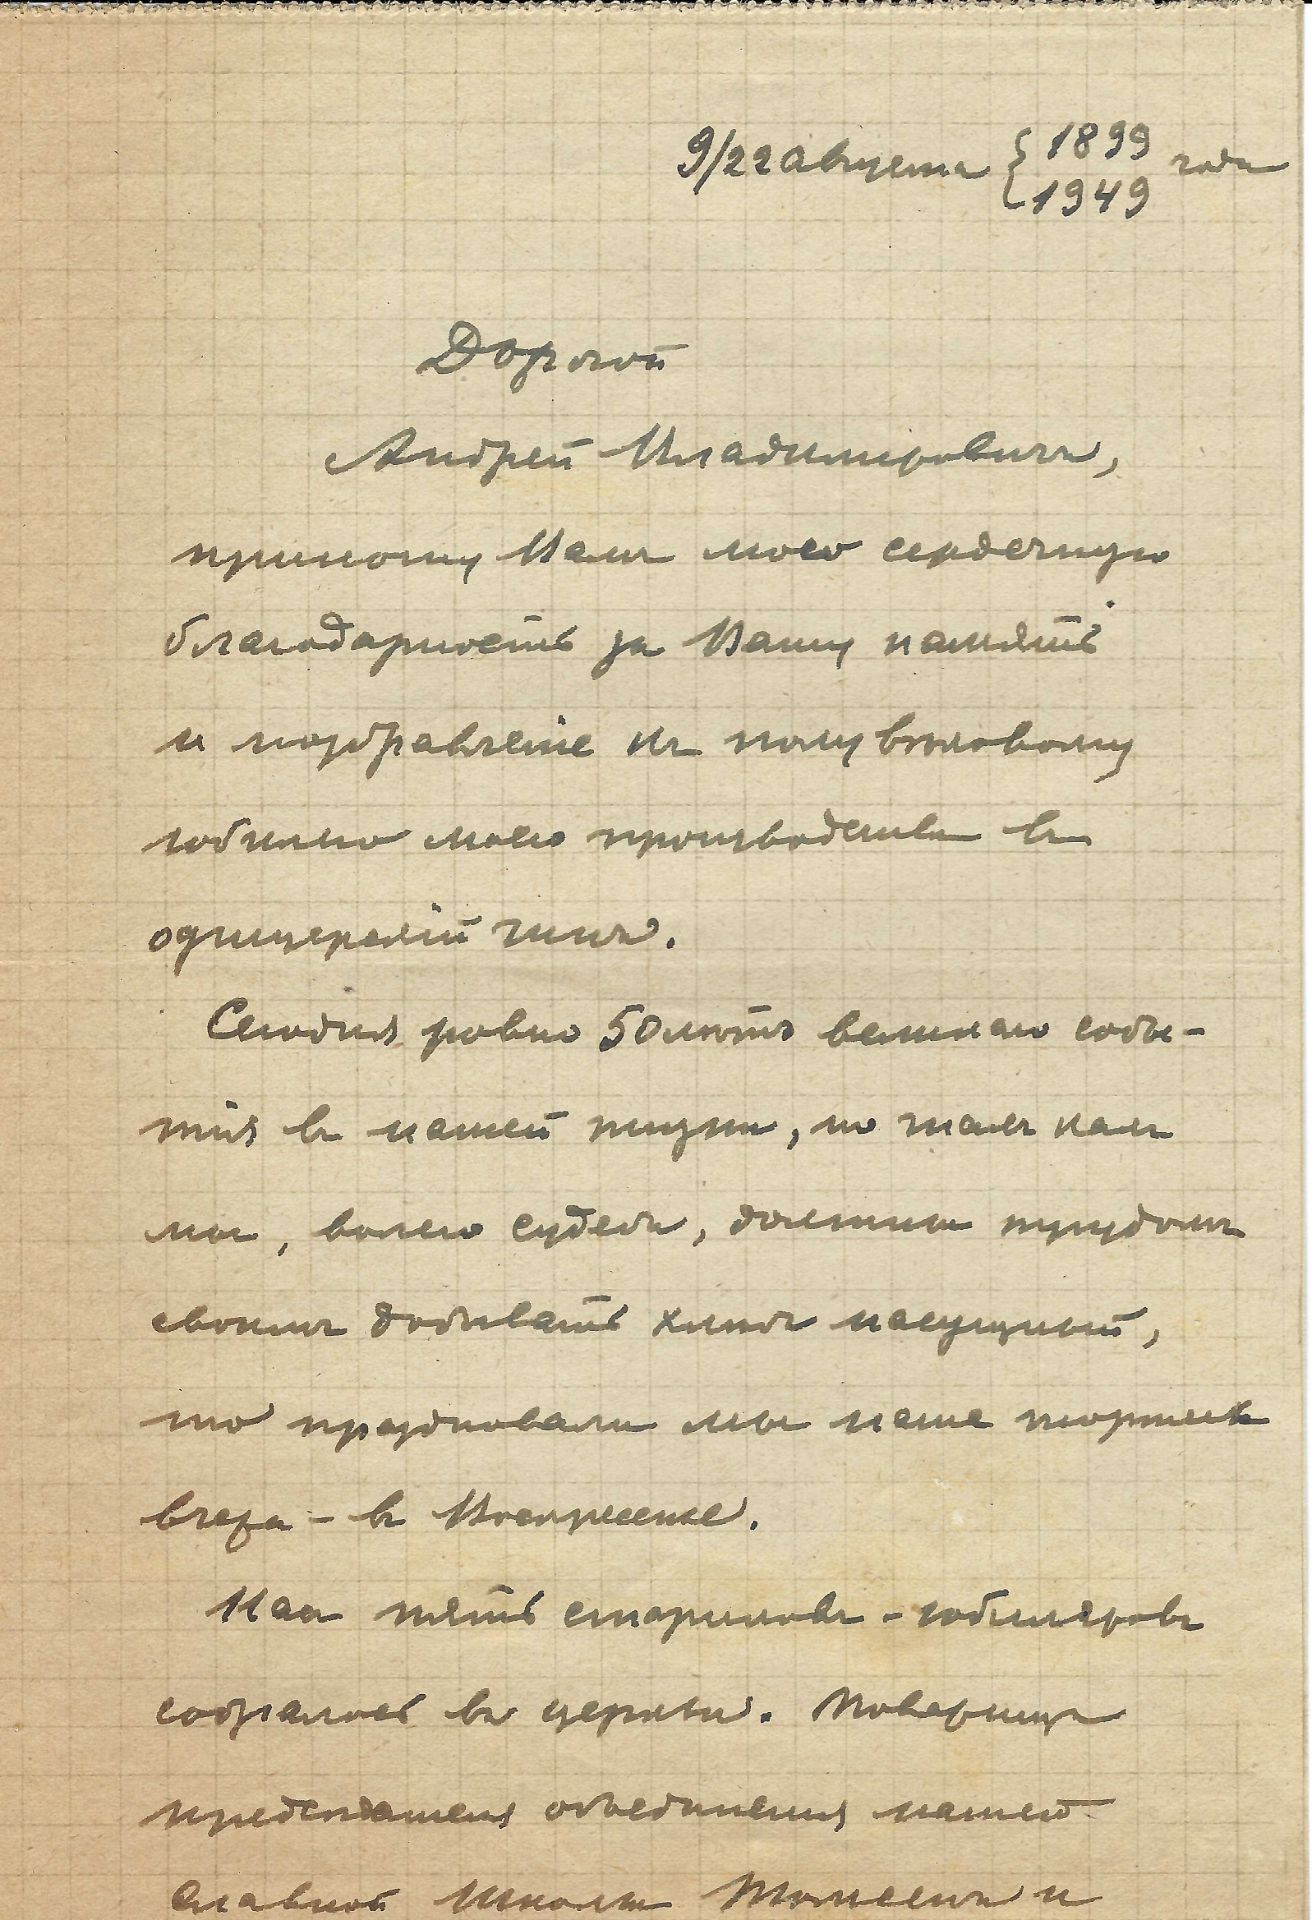 9/22 августа { 1899 года
1949
Дорогой
Андрей Владимировичъ,
приношу Вамъ мою сердечную
благодарность за Вашу память
и поздравленіе къ полувѣковому
юбилею моего производства въ
офицерскій чинъ.
Сегодня ровно 50лѣтъ великаго собы-
тія въ нашей жизни, но такъ какъ
мы, волею судебъ, должны трудомъ
своимъ добывать хлѣбъ насущный,
то праздновали мы наше торжество
вчера - въ Воскресенье.
Насъ пять стариковъ - юбиляровъ
собралось въ церкви.
председателя объединенія нашей
славной Школы и